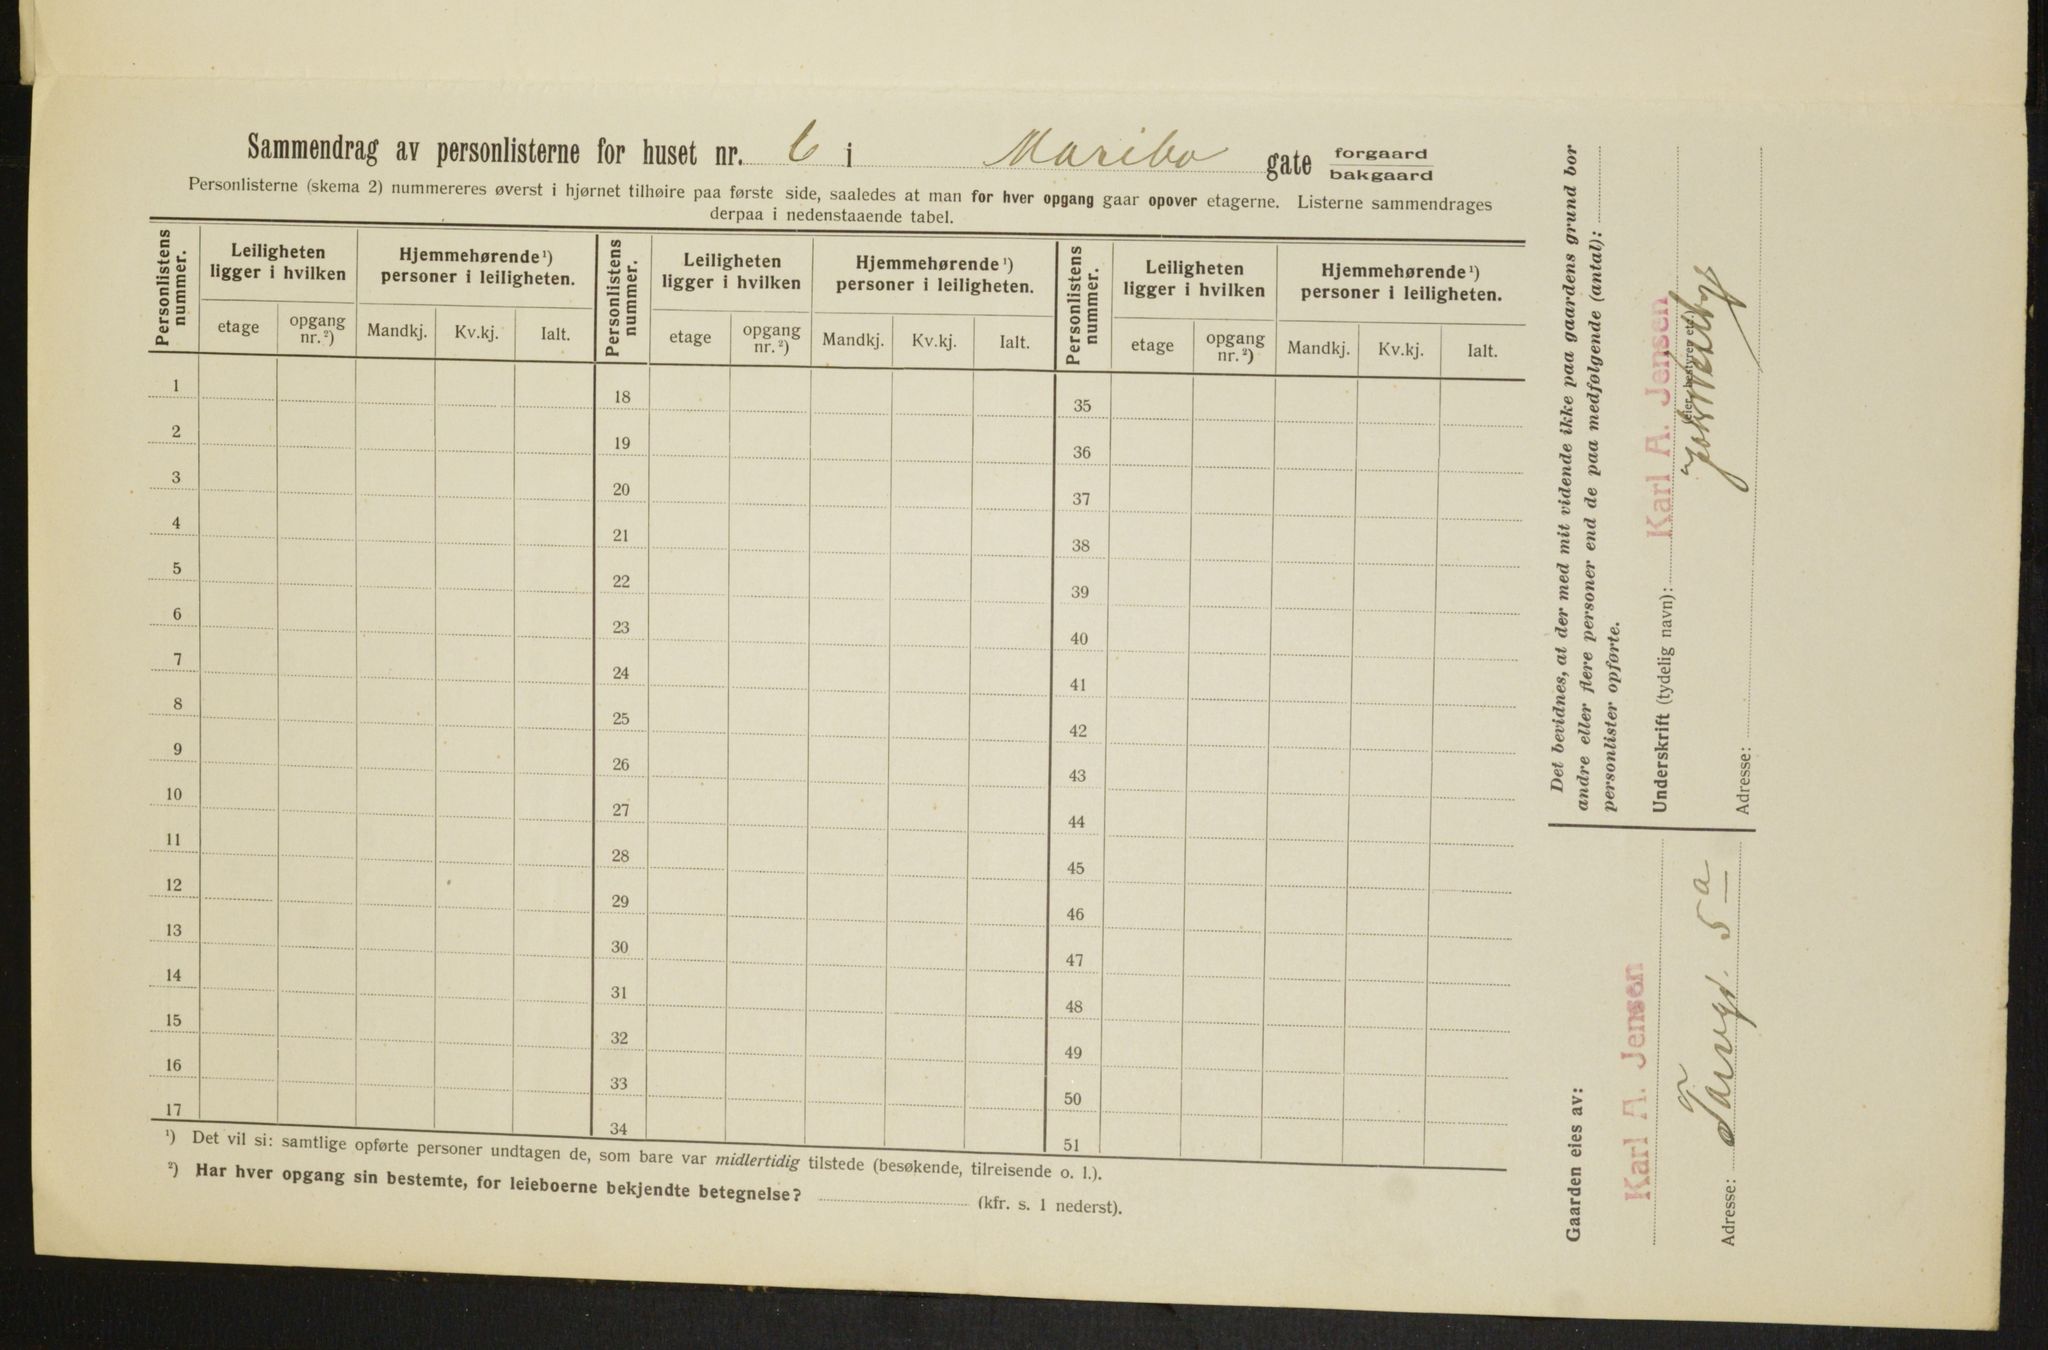 Sammendrag av personlisterne for huset nr. 6 i Maribo gate forgaard bakgaard
Personlisterne (skema 2) nummereres øverst i hjørnet tilhøire paa første side, saaledes at man for hver opgang gaar opover etagerne. Listerne sammendrages
derpaa i nedenstaaende tabel.
Personlistens nummer. Leiligheten ligger i hvilken Hjemmehørende ¹) personer i leiligheten. Personlistens nummer. Leiligheten ligger i hvilken Hjemmehørende ¹) personer i leiligheten. Personlistens nummer. Leiligheten ligger i hvilken Hjemmehørende ¹) personer i leiligheten.
etage opgang nr. ²) Mandkj. Kv.kj. Ialt. etage opgang nr. ²) Mandkj. Kv.kj. Ialt. etage opgang nr. ²) Mandkj. Kv.kj. Ialt.
1 18 35
2 19 36
3 20 37
4 21 38
5 22 39
6 23 40
7 24 41
8 25 42
9 26 43
10 27 44
11 28 45
12 29 46
13 30 47
14 31 48
15 32 49
16 33 50
17 34 51
¹) Det vil si: samtlige opførte personer undtagen de, som bare var midlertidig tilstede (besøkende, tilreisende o. l.).
²) Har hver opgang sin bestemte, for leieboerne bekjendte betegnelse? (kfr. s. 1 nederst).
Det bevidnes, at der med mit vidende ikke paa gaardens grund bor
andre eller flere personer end de paa medfølgende (antal):
personlister opførte.
Karl A. Jensen
Underskrift (tydelig navn):
(eier, bestyrer etc.)
Adresse:
Gaarden eies av:
Karl A. Jensen
Adresse: Torvgt. 5 a